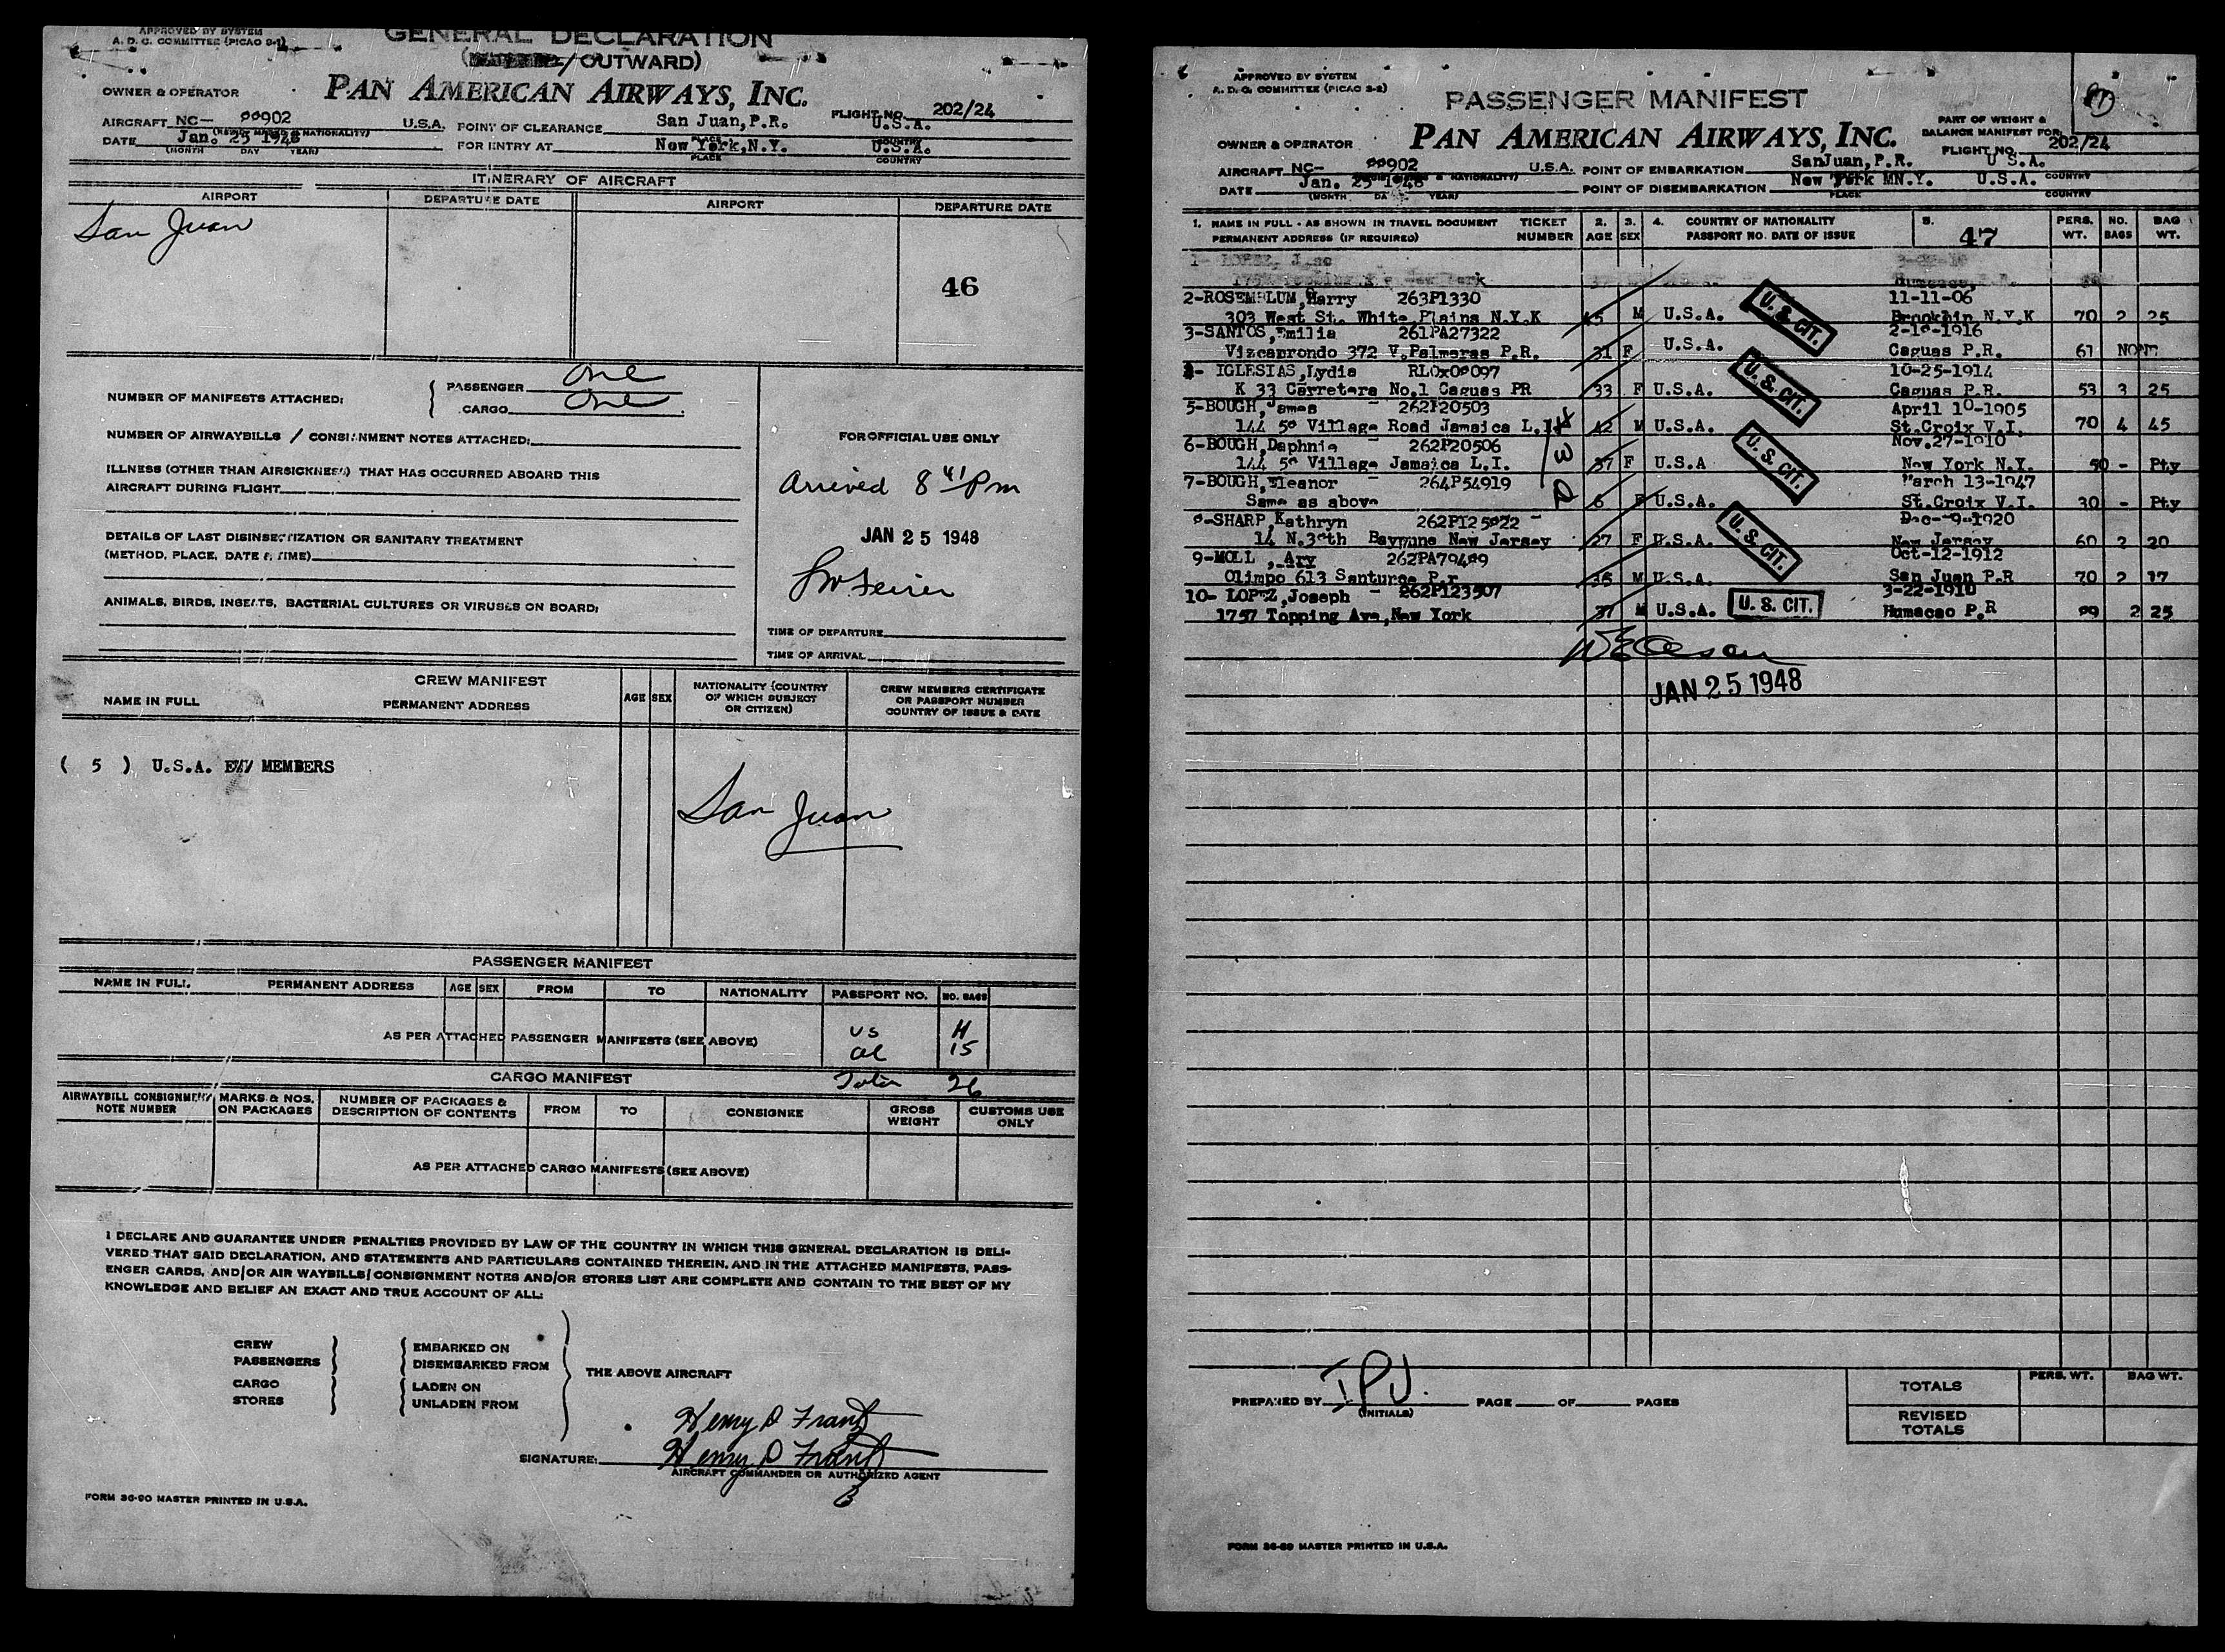 APPROVED BY SYSTEM
A. D. C. COMMITTEE (PICAO 2-1)
GENERAL DECLARATION
/OUTWARD)
OWNER & OPERATOR
PAN AMERICAN AIRWAYS, INC.
AIRCRAFT NC- 88902 U.S.A. POINT OF CLEARANCE San Juan,P.R. FLIGHT NO. 202/24
U.S.A.
DATE Jan. 25 1948 FOR ENTRY AT New York,N.Y. U.S.A.
(MONTH DAY YEAR) PLACE COUNTRY
ITINERARY OF AIRCRAFT
AIRPORT DEPARTURE DATE AIRPORT DEPARTURE DATE
San Juan
46
NUMBER OF MANIFESTS ATTACHED: PASSENGER One
CARGO One
NUMBER OF AIRWAYBILLS / CONSIGNMENT NOTES ATTACHED:
ILLNESS (OTHER THAN AIRSICKNESS) THAT HAS OCCURRED ABOARD THIS
AIRCRAFT DURING FLIGHT
DETAILS OF LAST DISINSECTIZATION OR SANITARY TREATMENT
(METHOD, PLACE, DATE & TIME)
ANIMALS, BIRDS, INSECTS, BACTERIAL CULTURES OR VIRUSES ON BOARD:
FOR OFFICIAL USE ONLY
Arrived 8 41 Pm
JAN 25 1948
TIME OF DEPARTURE
TIME OF ARRIVAL
CREW MANIFEST
NAME IN FULL PERMANENT ADDRESS AGE SEX NATIONALITY (COUNTRY OF WHICH SUBJECT OR CITIZEN) CREW MEMBERS CERTIFICATE OR PASSPORT NUMBER COUNTRY OF ISSUE & DATE
( 5 ) U.S.A. E// MEMBERS
San Juan
PASSENGER MANIFEST
NAME IN FULL PERMANENT ADDRESS AGE SEX FROM TO NATIONALITY PASSPORT NO. NO. BAGS
AS PER ATTACHED PASSENGER MANIFESTS (SEE ABOVE)
US 11
al 15
Total 26
CARGO MANIFEST
AIRWAYBILL CONSIGNMENT NOTE NUMBER MARKS & NOS. ON PACKAGES NUMBER OF PACKAGES & DESCRIPTION OF CONTENTS FROM TO CONSIGNEE GROSS WEIGHT CUSTOMS USE ONLY
AS PER ATTACHED CARGO MANIFESTS (SEE ABOVE)
I DECLARE AND GUARANTEE UNDER PENALTIES PROVIDED BY LAW OF THE COUNTRY IN WHICH THIS GENERAL DECLARATION IS DELI-
VERED THAT SAID DECLARATION, AND STATEMENTS AND PARTICULARS CONTAINED THEREIN, AND IN THE ATTACHED MANIFESTS, PASS-
ENGER CARDS, AND/OR AIR WAYBILLS/CONSIGNMENT NOTES AND/OR STORES LIST ARE COMPLETE AND CONTAIN TO THE BEST OF MY
KNOWLEDGE AND BELIEF AN EXACT AND TRUE ACCOUNT OF ALL:
CREW EMBARKED ON
PASSENGERS DISEMBARKED FROM
THE ABOVE AIRCRAFT
CARGO LADEN ON
STORES UNLADEN FROM
Henry D Frantz
SIGNATURE: Henry D Frantz
AIRCRAFT COMMANDER OR AUTHORIZED AGENT
FORM 36-90 MASTER PRINTED IN U.S.A.
APPROVED BY SYSTEM
A. D. C. COMMITTEE (PICAO 2-2)
PASSENGER MANIFEST
OWNER & OPERATOR
PAN AMERICAN AIRWAYS, INC.
PART OF WEIGHT &
BALANCE MANIFEST FOR
FLIGHT NO. 202/24
AIRCRAFT NC- 88902 U.S.A. POINT OF EMBARKATION SanJuan,P.R. U S.A.
DATE Jan. 25 1948 POINT OF DISEMBARKATION New York MN.Y. U.S.A. COUNTRY
(MONTH DAY YEAR) PLACE COUNTRY
1. NAME IN FULL - AS SHOWN IN TRAVEL DOCUMENT TICKET 2. 3. 4. COUNTRY OF NATIONALITY 5. PERS. NO. BAG
PERMANENT ADDRESS (IF REQUIRED) NUMBER AGE SEX PASSPORT NO. DATE OF ISSUE 47 WT. BAGS WT.
2-ROSEMBLUM,Harry 263P1330 11-11-06
303 West St. White Plains N.Y.K 45 M U.S.A. U. S. CIT. Brooklin N.Y.K 70 2 25
3-SANTOS,Emilia 261PA27322 2-18-1916
Vizcarrondo 372 V.Palmeras P.R. 31 F U.S.A. Caguas P.R. 61 NONE
4- IGLESIAS,Lydia RLOx08097 10-25-1914
K 33 Carretera No.1 Caguas PR 33 F U.S.A. U. S. CIT. Caguas P.R. 53 3 25
5-BOUGH,James - 262P20503 April 10-1905
144 50 Village Road Jamaica L.I. 42 M U.S.A. St.Croix V.I. 70 4 45
6-BOUGH,Daphnie - 262P20506 Nov.27-1910
144 50 Village Jamaica L.I. 37 F U.S.A U. S. CIT. New York N.Y. 50 - Pty
7-BOUGH,Eleanor - 264P54919 March 13-1947
Same as above 6 F U.S.A. St.Croix V.I. 30 - Pty
8-SHARP,Kathryn 262P125822 - Dec--9-1920
14 N.38th Bayonne New Jersey 27 F U.S.A. U. S. CIT. New Jersey 60 2 20
9-MOLL ,Ary 262PA79489 Oct-12-1912
Olimpo 613 Santurce P.r 35 M U.S.A. San Juan P.R 70 2 17
10- LOPEZ,Joseph - 262P123507 3-22-1910
1757 Topping Ave,New York 37 M U.S.A. U. S. CIT. Humacao P.R 89 2 25
JAN 25 1948
PREPARED BY IPJ. PAGE OF PAGES
(INITIALS)
PERS. WT. BAG WT.
TOTALS
REVISED
TOTALS
FORM 36-89 MASTER PRINTED IN U.S.A.